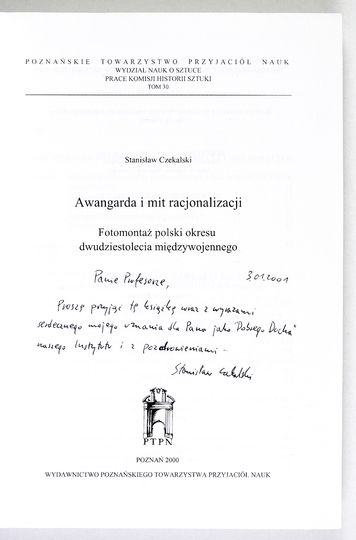 POZNAŃSKIE TOWARZYSTWO PRZYJACIÓŁ NAUK
WYDZIAŁ NAUK O SZTUCE
PRACE KOMISJI HISTORII SZTUKI
TOM 30
Stanisław Czekalski
Awangarda i mit racjonalizacji
Fotomontaż polski okresu
dwudziestolecia międzywojennego
Panie Profesorze,
3.01.2001
Proszę przyjąć tę książkę wraz z wyrazami
serdecznego mojego uznania dla Pana jako "Dobrego Ducha"
naszego Instytutu i z pozdrowieniami –
Stanisław Czekalski
PTPN
POZNAŃ 2000
WYDAWNICTWO POZNAŃSKIEGO TOWARZYSTWA PRZYJACIÓŁ NAUK